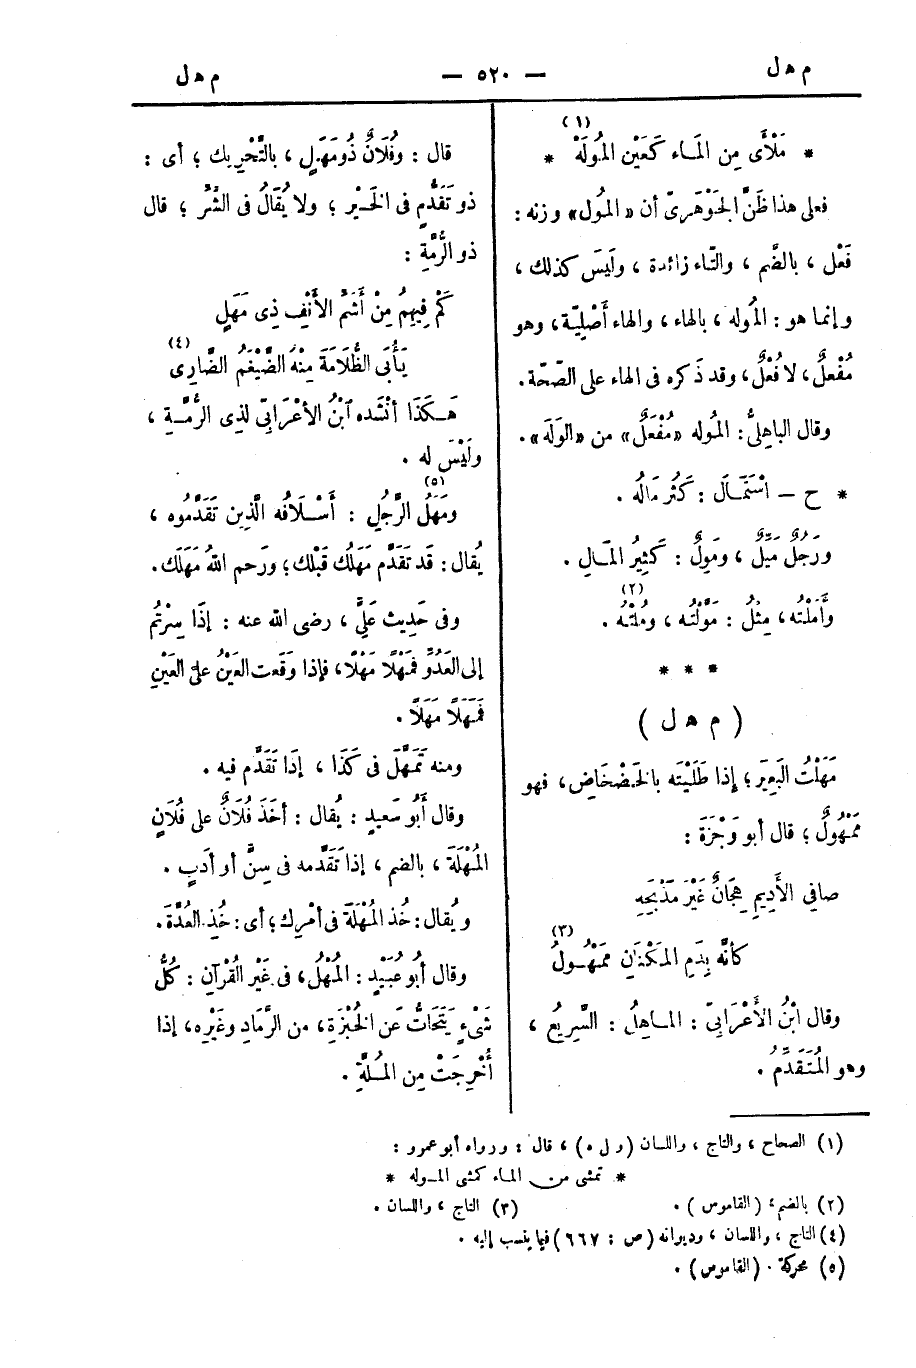 م هل — ٥٢٠ — م هل
(١)
* مَلْأَى مِن المَاء كَعَيْن المُولَهْ *
فعلى هذا ظَنَّ الجَوْهَرىّ أن «المُول» وزنه :
فَعْل ، بالضَّم ، والتاء زائدة ، ولَيسَ كذلك ،
وإنما هو : المُوله ، بالهاء ، والهاء أَصْلِيّة ، وهو
مُفْعلٌ ، لا فُعْلٌ ، وقد ذَكره فى الهاء على الصّحّة .
وقال الباهلىُّ : المُوله «مُفْعَلٌ» من «الوَلَه» .
* ح – اسْتَمَالَ : كَثُر مَالُه .
ورَجُلٌ مَيِّلٌ ، ومَوِلٌ : كَثِيرُ المَالِ .
(٢)
وأَمَلْتُه ، مِثْلُ : مَوَّلْتُه ، ومُلْتُه .
* * *
( م هل )
مَهَلْتُ البَعِيرَ ؛ إذا طَلَيْتَه بالخَضْخَاض ، فهو
مَمْهُولٌ ؛ قال أبو وَجْزَةَ :
صافِي الأَدِيمِ هِجَانٌ غَيْرَ مَذْبَحِهِ
(٣)
كأنَّه بِدَمِ المَكْنَانِ مَمْهُولُ
وقال ابْنُ الأَعْرَابِىّ : المَاهِلُ : السَّرِيعُ ،
وهو المُتَقَدِّمُ .
قال : وفُلَانٌ ذُو مَهَلٍ ، بالتَّحْرِيك ؛ أى :
ذو تَقَدُّمٍ فى الخَيْر ؛ ولا يُقَالُ فى الشَّرّ ؛ قال
ذو الرُّمَّةِ :
كَمْ فِيهِمُ مِنْ أَشَمِّ الأَنْفِ ذِى مَهَلٍ
(٤)
يَأْبَى الظُّلَامَةَ مِنْهُ الضَّيْغَمُ الضَّارِى
هَكَذَا أنْشَده ابْنُ الأعْرَابِىّ لِذِى الرُّمَّةِ ،
ولَيْسَ له .
(٥)
ومَهَلُ الرَّجُلِ : أَسْلَافُه الَّذِين تَقَدَّمُوه ،
يُقال : قَد تَقَدَّم مَهَلُك قَبْلَك ؛ ورَحم اللهُ مَهَلَك .
وفى حَدِيث عَلِىٍّ ، رضى الله عنه : إذَا سِرْتُم
إلى العَدُوِّ فَمَهْلًا مَهْلًا ، فإذا وَقَعت العَيْنُ على العَيْنِ
فَمَهَلًا مَهَلًا .
ومنه تَمَهَّلَ فى كَذَا ، إذَا تَقَدَّم فيه .
وقال أَبُو سَعِيدٍ : يُقال : أَخَذَ فُلَانٌ على فُلَانٍ
المُهْلَةَ ، بالضم ، إذا تَقَدَّمه فى سِنٍّ أو أدَبٍ .
ويُقال : خُذ المُهْلَةَ فى أمْرِك ؛ أى : خُذِ العُدَّةَ .
وقال أبُو عُبَيْدٍ : المُهْلُ ، فى غَيْرِ القُرْآنِ : كُلُّ
شَىْءٍ يَتَحَاتُّ عَن الخُبْزَةِ ، من الرَّمَادِ وغَيْرِه ، إذا
أُخْرِجَتْ مِن المَلَّةِ .
(١) الصحاح ، والتاج ، واللسان (ول ه) ، قال : ورواه أبو عمرو :
* تمشى من الماء كمشى الموله *
(٢) بالضم ، (القاموس) . (٣) التاج ، واللسان .
(٤) التاج ، واللسان ، وديوانه (ص : ٦٦٧) فيما ينسب إليه .
(٥) محركة . (القاموس) .